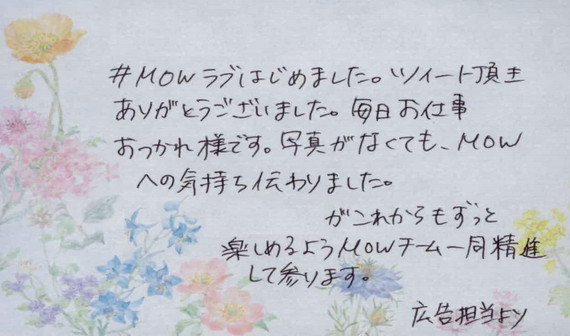 #MOWラブはじめました。ツイート頂き
ありがとうございました。毎日お仕事
おつかれ様です。写真がなくても、MOW
への気持ち伝わりました。
がこれからもずっと
楽しめるようMOWチーム一同精進
して参ります。
広告担当より